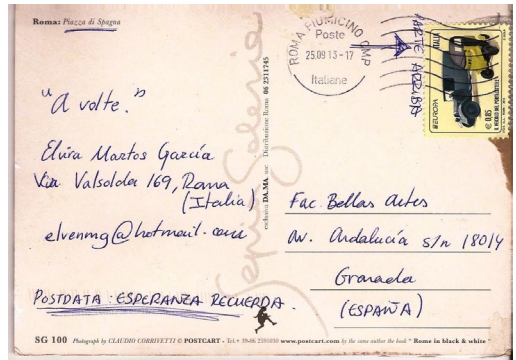 Roma: Piazza di Spagna
ROMA FIUMICINO CMP
Poste
25.09 13-17
Italiane
PARTE ARRIBA
ITALIA
EUROPA
€ 0,85
"A volte."
Elvira Martos García
Via Valsolda 169, Roma
(Italia)
elvenmg@hotmail.com
POSTDATA: ESPERANZA RECUERDA.
esclusiva DA.MA. snc Distribuzione Roma 06 2311745
Seppia Soleria
Fac. Bellas Artes
Av. Andalucía s/n 18014
Granada
(ESPAÑA)
SG 100 Photograph by CLAUDIO CORRIVETTI © POSTCART - Tel. + 39-06 2591030 www.postcart.com by the same author the book "Rome in black & white"